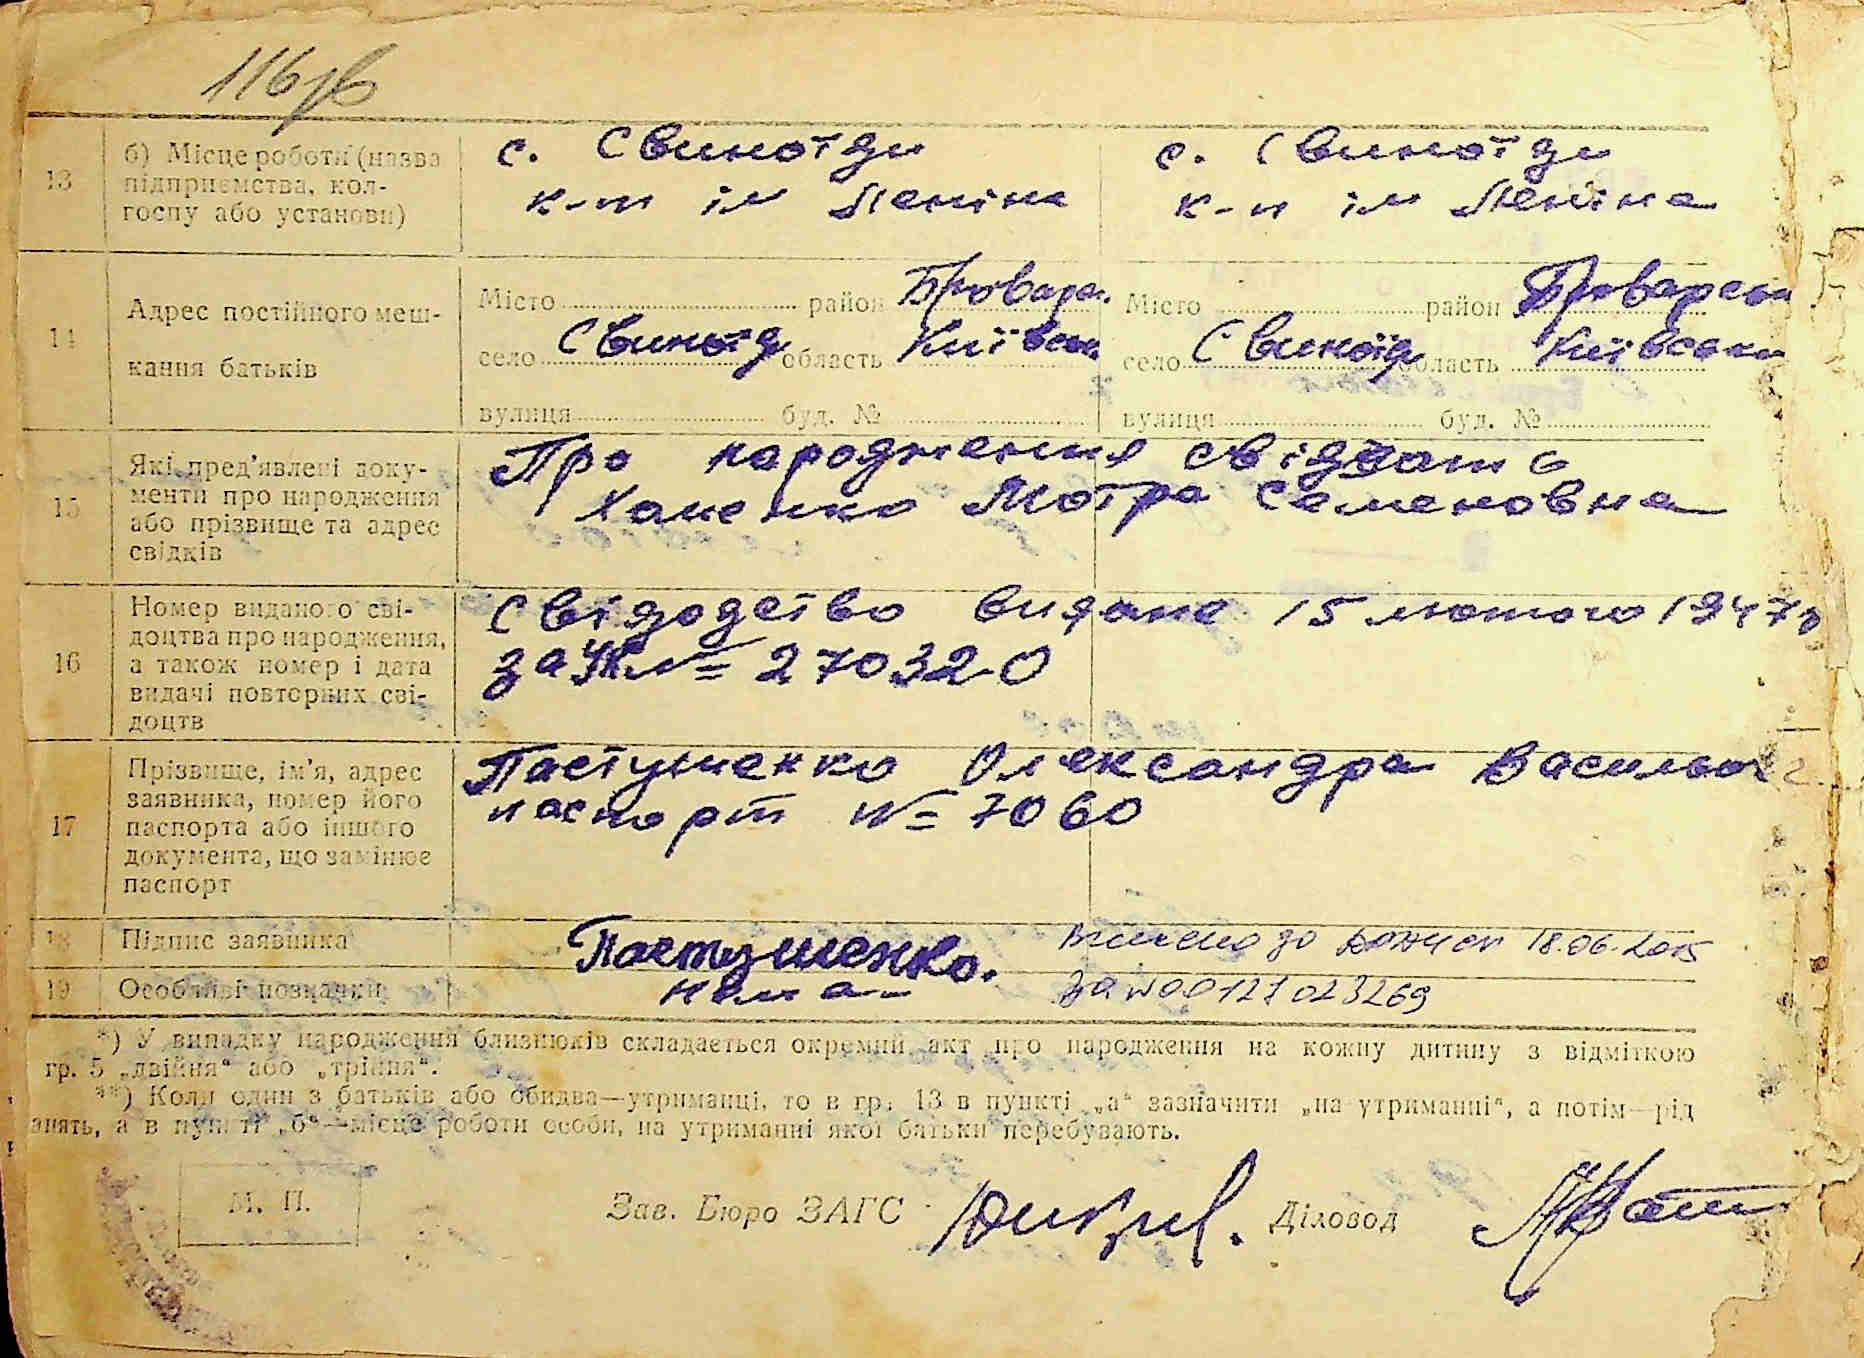 116
13 б) Місце роботи (назва підприємства, кол-госпу або установи)
с. Свиноїди с. Свиноїди
к-п ім Леніна к-п ім Леніна
14 Адрес постійного меш-
кання батьків
Місто район Броварс. Місто район Броварськ
село Свиноїд область Київськ село Свиноїд область Київськи
вулиця буд. № вулиця буд. №
15 Які пред'явлені доку-
менти про народження
або прізвище та адрес
свідків
Про народження свідчать
Ханенко Мотра Семеновна
16 Номер виданого сві-
доцтва про народження,
а також номер і дата
видачі повторних сві-
доцтв
Свідодство видане 15 лютого 1947р
за ЧЖ № 270320
17 Прізвище, ім'я, адрес
заявника, номер його
паспорта або іншого
документа, що замінює
паспорт
Пастушенко Олександра Васильов
паспорт № 7060
18 Підпис заявника Пастушенко. Внесено до ДРАЦСГ 18.06.2015
19 Особливі позначки нема за №00127023269
*) У випадку народження близнюків складається окремий акт про народження на кожну дитину з відміткою
гр. 5 „двійня“ або „трійня“.
**) Коли один з батьків або обидва—утриманці, то в гр. 13 в пункті „а“ зазначити „на утриманні“, а потім—рід
занять, а в пункті „б“—місце роботи особи, на утриманні якої батьки перебувають.
М. П. Зав. Бюро ЗАГС Діловод